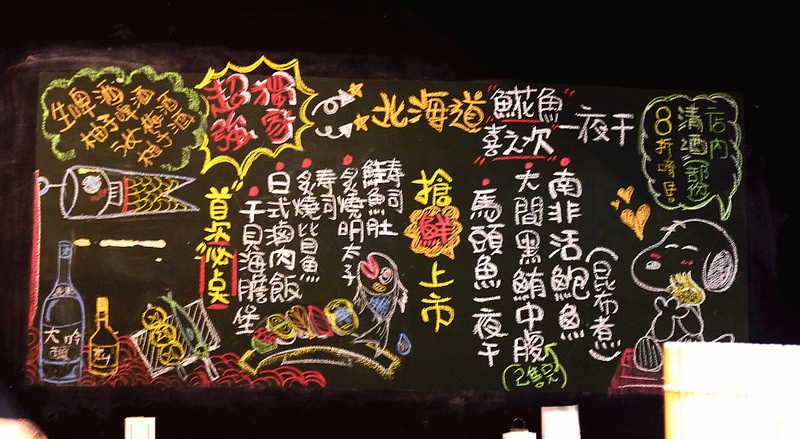 生啤酒
柚子啤酒
沙梅酒
柚子酒
獨家
超強
北海道
鯱花魚
喜之次
一夜干
店內
清酒(部份)
8折時居!
搶鮮上市
南非活鮑魚
(昆布煮)
大間黑鮪中腹
(已售完)
馬頭魚一夜干
首次必点
鮭魚肚
壽司
炙燒明太子
壽司
炙燒比目魚
日式滷肉飯
干貝海膽堡
大吟釀